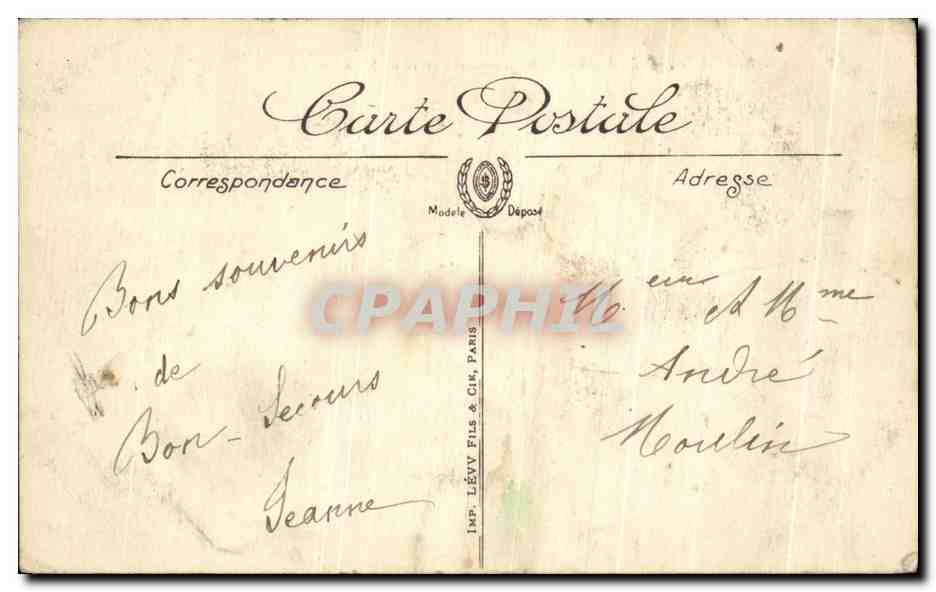 Carte Postale
Correspondance
Adresse
Modèle Déposé
Bons souvenirs
de
Bon-Secours
Jeanne
IMP. LÉVY FILS & CIE, PARIS
CPAPHIL
Mr et Mme
André
Moulin